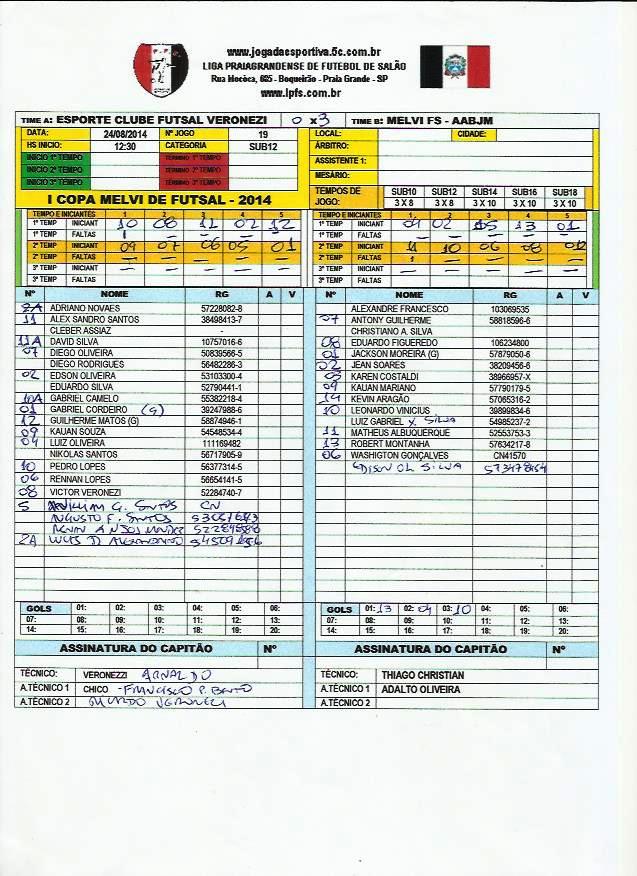 www.jogadaesportiva.5c.com.br
LIGA PRAIAGRANDENSE DE FUTEBOL DE SALÃO
Rua Mocòca, 685 - Boqueirão - Praia Grande - SP
www.lpfs.com.br
TIME A: ESPORTE CLUBE FUTSAL VERONEZI 0 x 3 TIME B: MELVI FS - AABJM
DATA: 24/08/2014 Nº JOGO 19 LOCAL: CIDADE:
HS INICIO: 12:30 CATEGORIA SUB12 ÁRBITRO:
INICIO 1º TEMPO TÉRMINO 1º TEMPO ASSISTENTE 1:
INICIO 2º TEMPO TÉRMINO 2º TEMPO MESÁRIO:
INICIO 3º TEMPO TÉRMINO 3º TEMPO
I COPA MELVI DE FUTSAL - 2014
TEMPOS DE JOGO: SUB10 SUB12 SUB14 SUB16 SUB18
3 X 8 3 X 8 3 X 10 3 X 10 3 X 10
TEMPO E INICIANTES 1 2 3 4 5 TEMPO E INICIANTES 1 2 3 4 5
1º TEMP INICIANT 10 08 11 02 12 1º TEMP INICIANT 09 02 05 13 01
1º TEMP FALTAS 1 — — — — 1º TEMP FALTAS — — — — —
2º TEMP INICIANT 09 07 06 05 01 2º TEMP INICIANT 11 10 06 08 012
2º TEMP FALTAS — — — — — 2º TEMP FALTAS 1 — — — —
3º TEMP INICIANT — — — — — 3º TEMP INICIANT — — — — —
3º TEMP FALTAS 3º TEMP FALTAS
Nº NOME RG A V Nº NOME RG A V
ADRIANO NOVAES 57228082-8
11 ALEX SANDRO SANTOS 38498413-7
CLEBER ASSIAZ -
11A DAVID SILVA 10757016-6
07 DIEGO OLIVEIRA 50839566-5
DIEGO RODRIGUES 56482286-3
02 EDSON OLIVEIRA 53103300-4
EDUARDO SILVA 52790441-1
10A GABRIEL CAMELO 55382218-4
01 GABRIEL CORDEIRO (G) 39247988-6
12 GUILHERME MATOS (G) 58874946-1
09 KAUAN SOUZA 54548534-4
04 LUIZ OLIVEIRA 111169482
NIKOLAS SANTOS 56717905-9
10 PEDRO LOPES 56377314-5
06 RENNAN LOPES 56654141-5
08 VICTOR VERONEZI 52284740-7
5 G. SANTOS CN
AUGUSTO F. SANTOS
2A
ALEXANDRE FRANCESCO 103069535
07 ANTONY GUILHERME 58818596-6
CHRISTIANO A. SILVA
08 EDUARDO FIGUEREDO 106234800
01 JACKSON MOREIRA (G) 57879050-6
02 JEAN SOARES 38209456-6
05 KAREN COSTALDI 38966957-X
09 KAUAN MARIANO 57790179-5
14 KEVIN ARAGÃO 57065316-2
10 LEONARDO VINICIUS 39899834-6
LUIZ GABRIEL X. SILVA 54985237-2
11 MATHEUS ALBUQUERQUE 52553753-3
13 ROBERT MONTANHA 57634217-8
06 WASHIGTON GONÇALVES CN41570
SILVA
GOLS 01: 02: 03: 04: 05: 06: GOLS 01: 13 02: 09 03: 10 04: 05: 06:
07: 08: 09: 10: 11: 12: 13: 07: 08: 09: 10: 11: 12: 13:
14: 15: 16: 17: 18: 19: 20: 14: 15: 16: 17: 18: 19: 20:
ASSINATURA DO CAPITÃO Nº ASSINATURA DO CAPITÃO Nº
TÉCNICO: VERONEZZI ARNALDO TÉCNICO: THIAGO CHRISTIAN
A.TÉCNICO 1 CHICO - FRANCISCO P. BENTO A.TÉCNICO 1 ADALTO OLIVEIRA
A.TÉCNICO 2 MURILO VERONEZI A.TÉCNICO 2